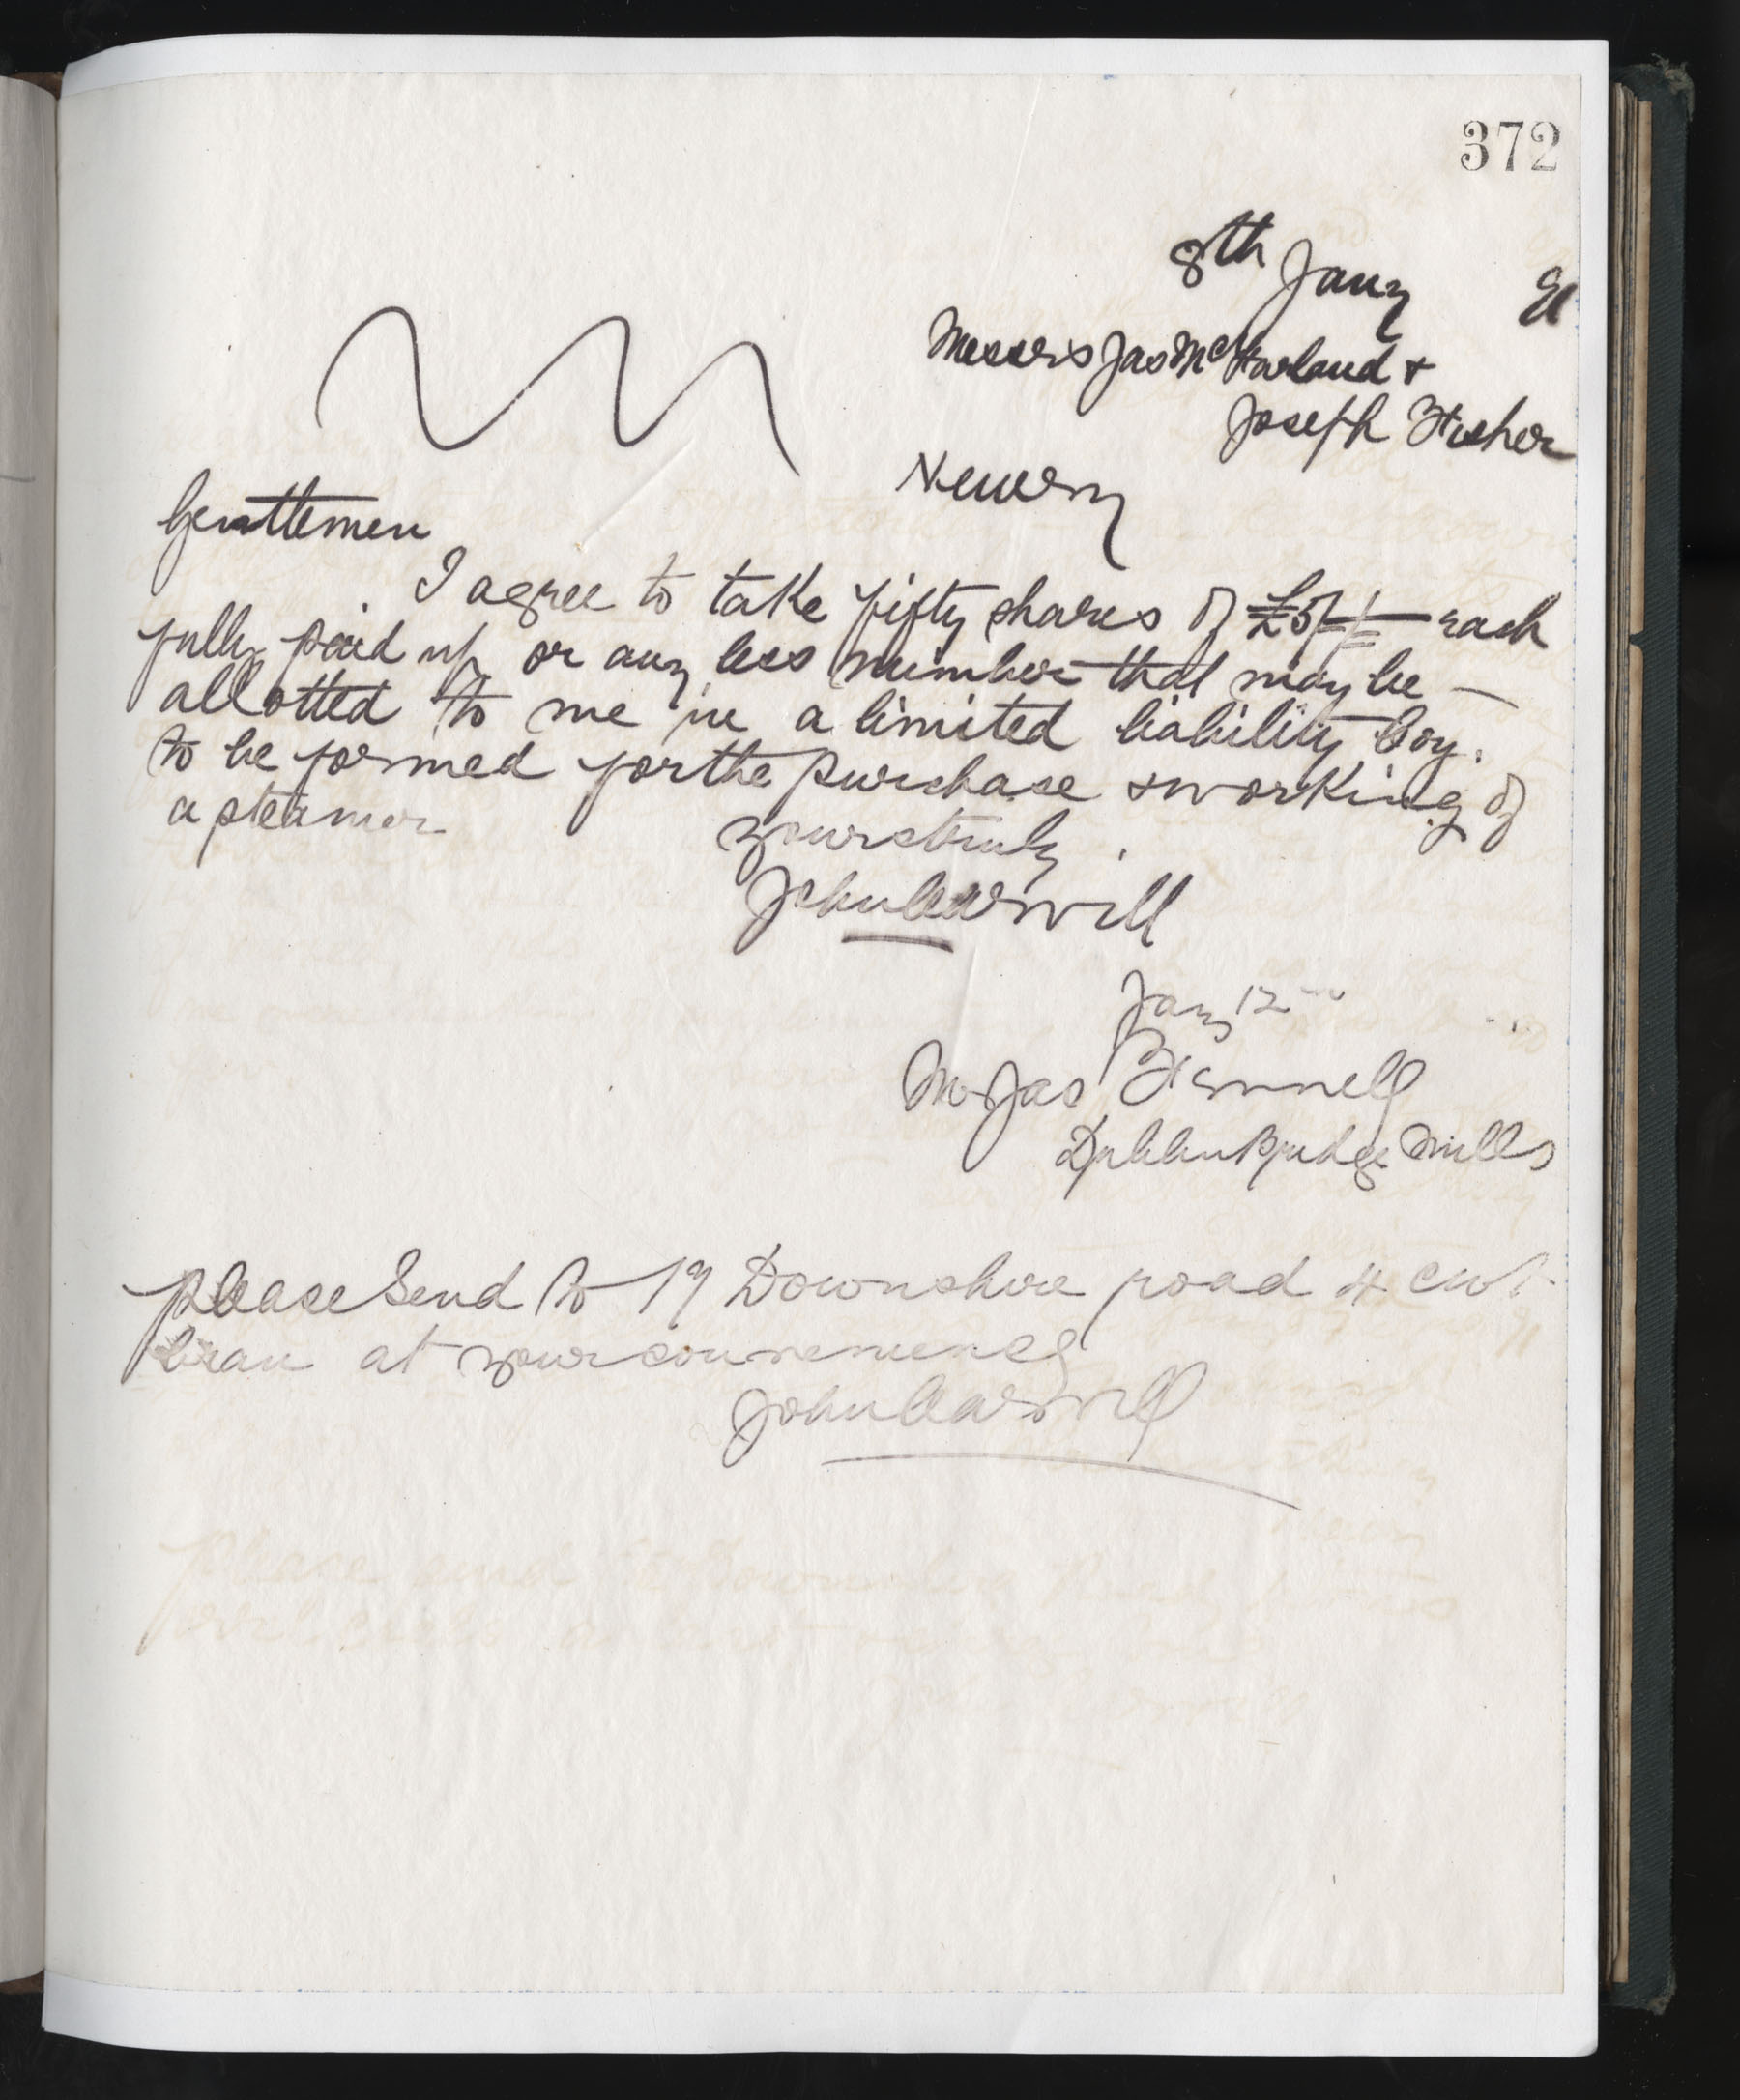 372
8th Jany 91
Messrs Jas McFarland +
Joseph Fisher
Newry
Gentlemen
I agree to take fifty shares of £5/-/- each
fully paid up or any less number that may be —
allotted to me in a limited liability Coy.
to be formed for the purchase & working of
a steamer
yours truly
John Carvill
Jany 12
Mr Jas Fennell
Dublin Bridge Mills
please Send to 17 Downshire road 4 cwt
bran at your convenience
John Carvill